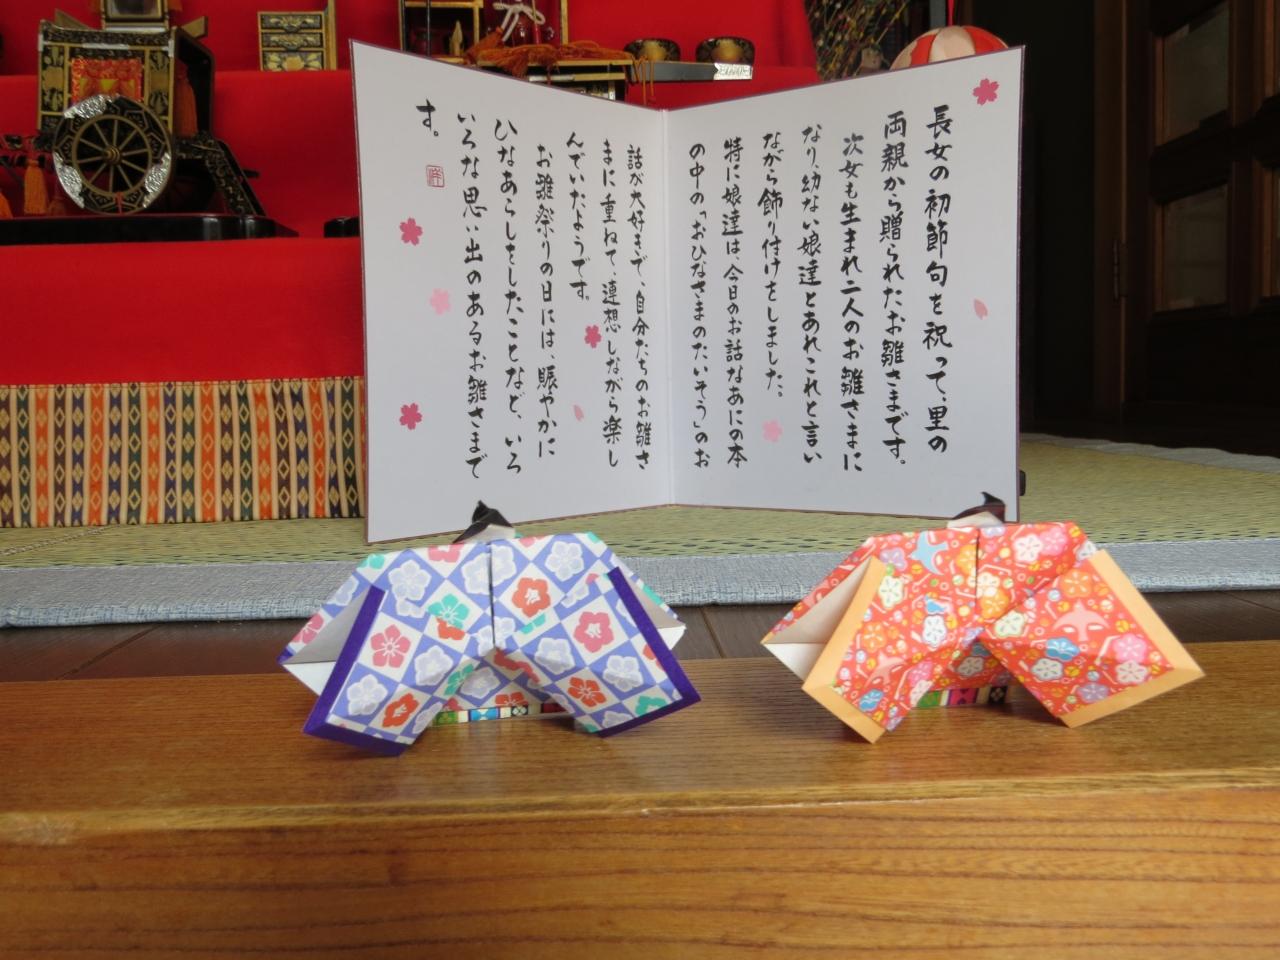 長女の初節句を祝って、里の
両親から贈られたお雛さまです。
次女も生まれ二人のお雛さまに
なり、幼ない娘達とあれこれと言い
ながら飾り付けをしました。
特に娘達は、今日のお話なあにの本
の中の「おひなさまのたいそう」のお
話が大好きで、自分たちのお雛さ
まに重ねて、連想しながら楽し
んでいたようです。
お雛祭りの日には、賑やかに
ひなあらしをしたことなど、いろ
いろな思い出のあるお雛さまで
す。